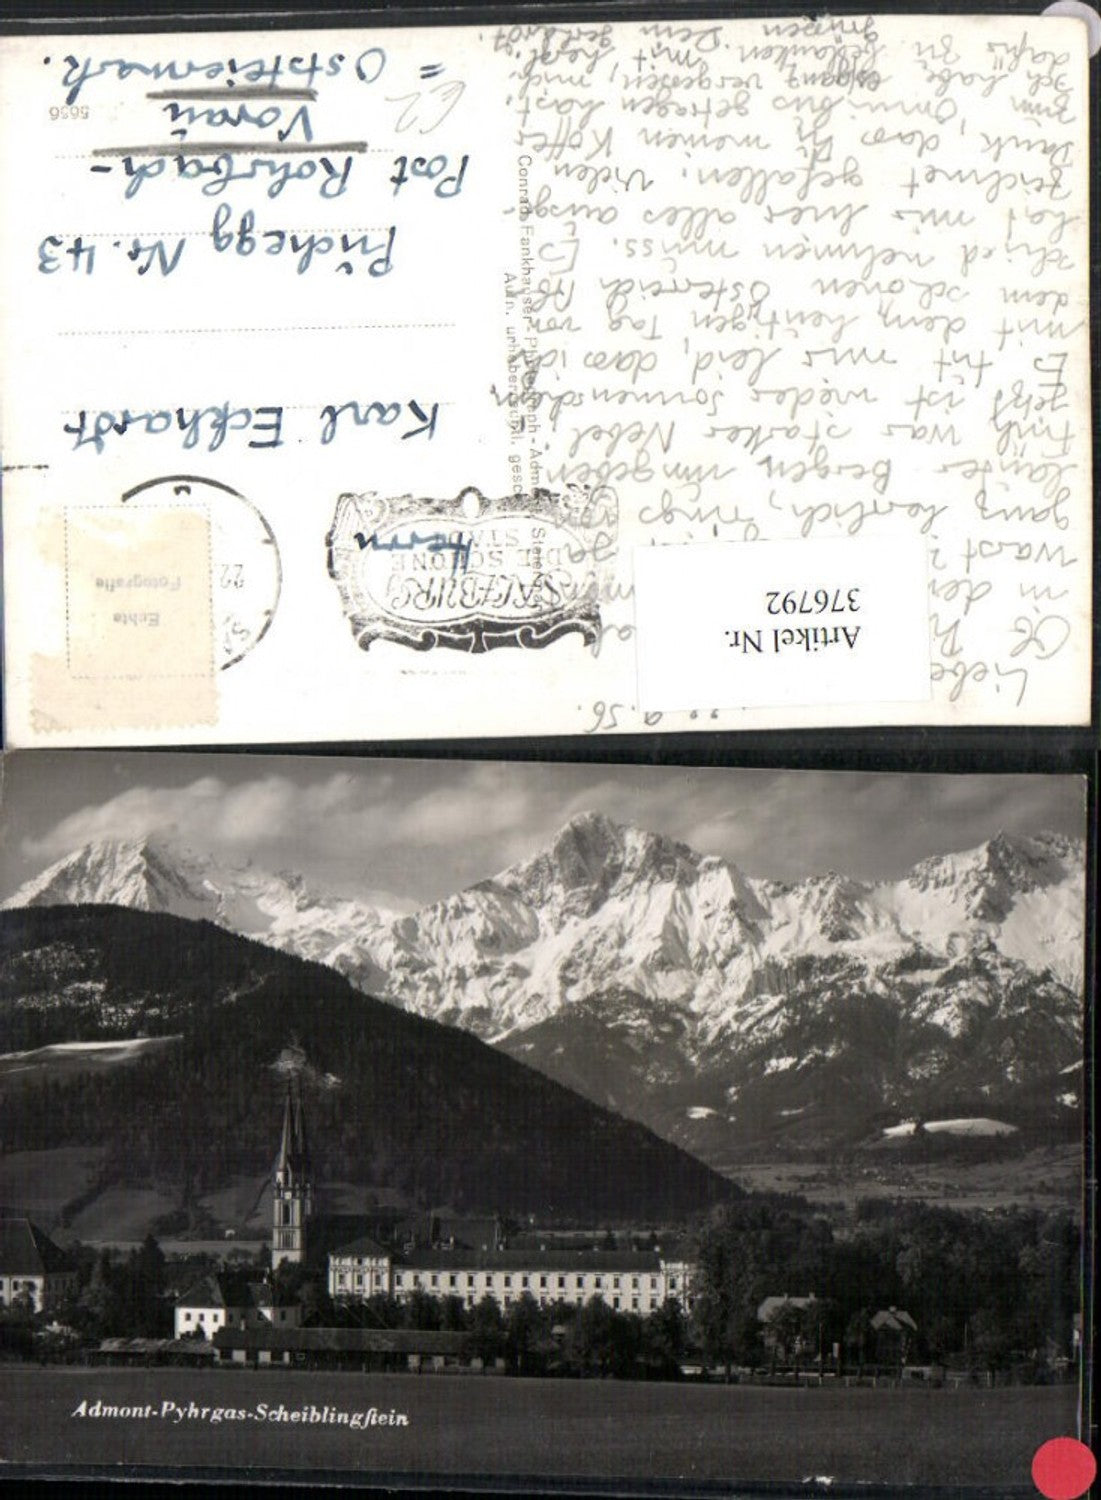 22.9.56.
Liebe
in der
warst?
ganz herrlich, rings von
lauter Bergen umgeben
Früh war starker Nebel
jetzt ist wieder Sonnenschein
Es tut mir leid, dass ich
mit dem heutigen Tag von
dem schönen Österreich Ab-
schied nehmen muss. Es
hat mir hier alles ausge-
zeichnet gefallen. Vielen
Dank, dass Du meinen Koffer
zum Omnibus getragen hast.
Ich habe ganz vergessen, mich
dafür zu bedanken. Mit herzl.
Grüssen Dein
Artikel Nr.
376792
Conrad Fankhauser, Photograph - Admont, Steiermark
Aufn. urheberrechtl. gesch.
SALZBURG
DIE SCHÖNE
STADT
22
Echte
Fotografie
Herrn
Karl Eckhardt
Puchegg Nr. 43
Post Rohrbach-
Vorau
= Oststeiermark.
5656
€2
Admont-Pyhrgas-Scheiblingstein